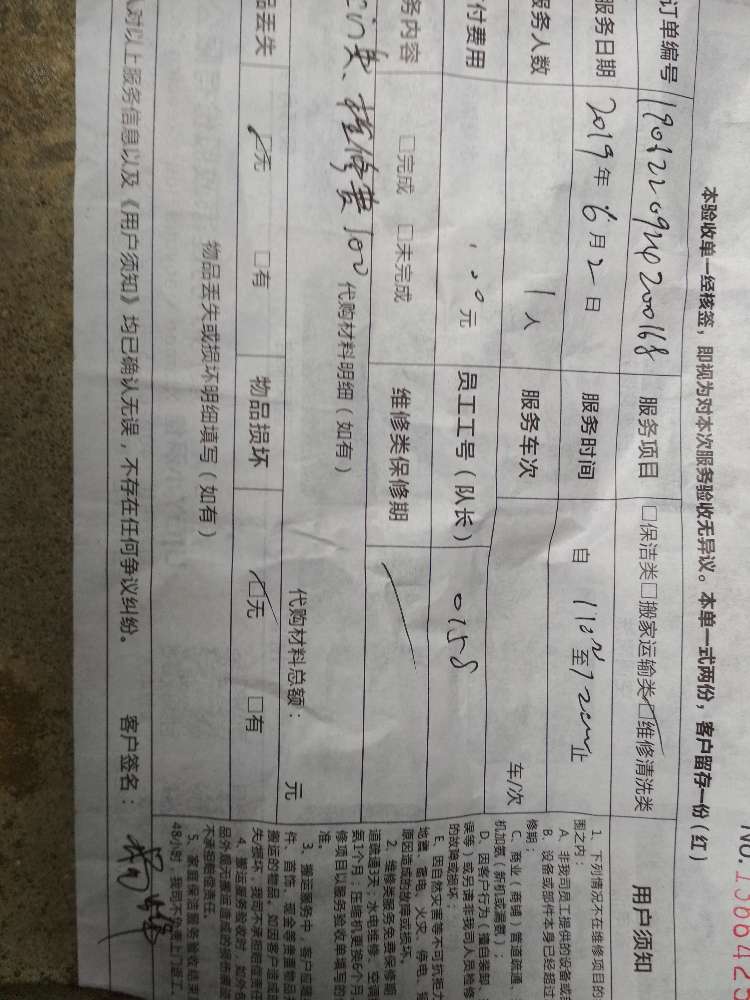 NO.1566425
本验收单一经核签，即视为对本次服务验收无异议。本单一式两份，客户留存一份（红）
订单编号 服务项目 □保洁类□搬家运输类□维修清洗类 用户须知
服务日期 2019年6月2日 服务时间 自 至 止
服务人数 1人 服务车次 车/次
付费用 100元 员工工号（队长） 0158
务内容 □完成 □未完成 维修类保修期
维修费100 代购材料明细（如有）
代购材料总额： 元
品丢失 □无 □有 物品损坏 □无 □有
物品丢失或损坏明细填写（如有）
认对以上服务信息以及《用户须知》均已确认无误，不存在任何争议纠纷。 客户签名：
1、下列情况不在维修项目的
围之内：
A、非我司员工提供的设备或
B、设备或部件本身已经超过
修期；
C、商业（商铺）管道疏通、
机加氨（新机或漏氨）；
D、因客户行为（擅自装卸、
误等）或另请非我司人员检修
的故障或损坏；
E、因自然灾害等不可抗拒力
地震、雷电、火灾、停电、
原因造成的故障或损坏。
2、维修类服务免费保修期
道疏通3天；水电维修、空调
氨1个月；压缩机更换6个月
修项目以服务验收单填写的
准。
3、搬运服务中，客户应
件、首饰、现金等贵重物品
搬运的物品。如因客户造成
失/损坏，我司不承担赔偿责任
4、搬运服务验收时，如外包
品外观无搬运造成的损伤痕迹
不承担赔偿责任。
5、家庭保洁服务验收结束
48小时，我司不负责上门返工。